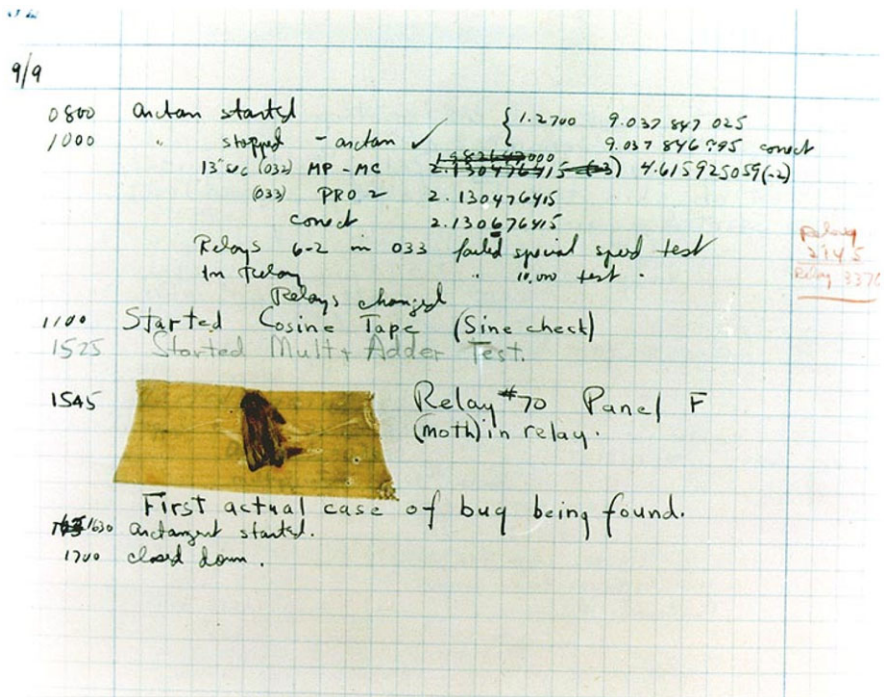 9/9
0800 arctan started { 1.2700 9.037 847 025
1000 " stopped - arctan ✓ 9.037 846 995 correct
13"uc (032) MP - MC 1.982647000 2.130476415 (-3) 4.615925059(-2)
(033) PRO 2 2.130476415
correct 2.130676415
Relays 6-2 in 033 failed special speed test
In relay " 10,000 test .
Relays changed
Relay
2145
Relay 3370
1100 Started Cosine Tape (Sine check)
1525 Started Mult + Adder Test.
1545 Relay #70 Panel F
(moth) in relay.
First actual case of bug being found.
1630 arctangent started.
1700 closed down.